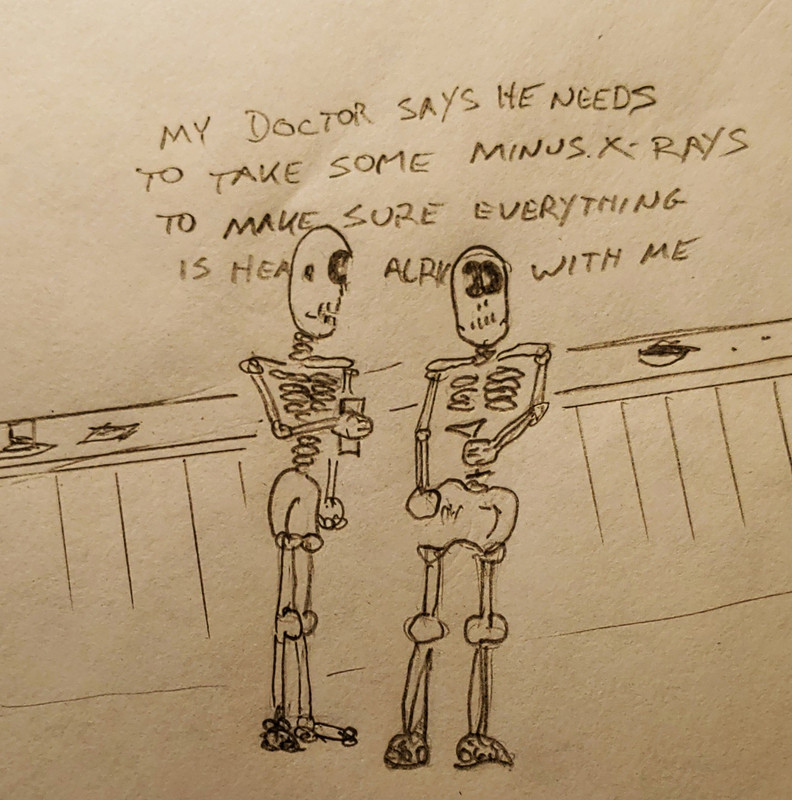 MY DOCTOR SAYS HE NEEDS
TO TAKE SOME MINUS.X-RAYS
TO MAKE SURE EVERYTHING
IS WITH ME